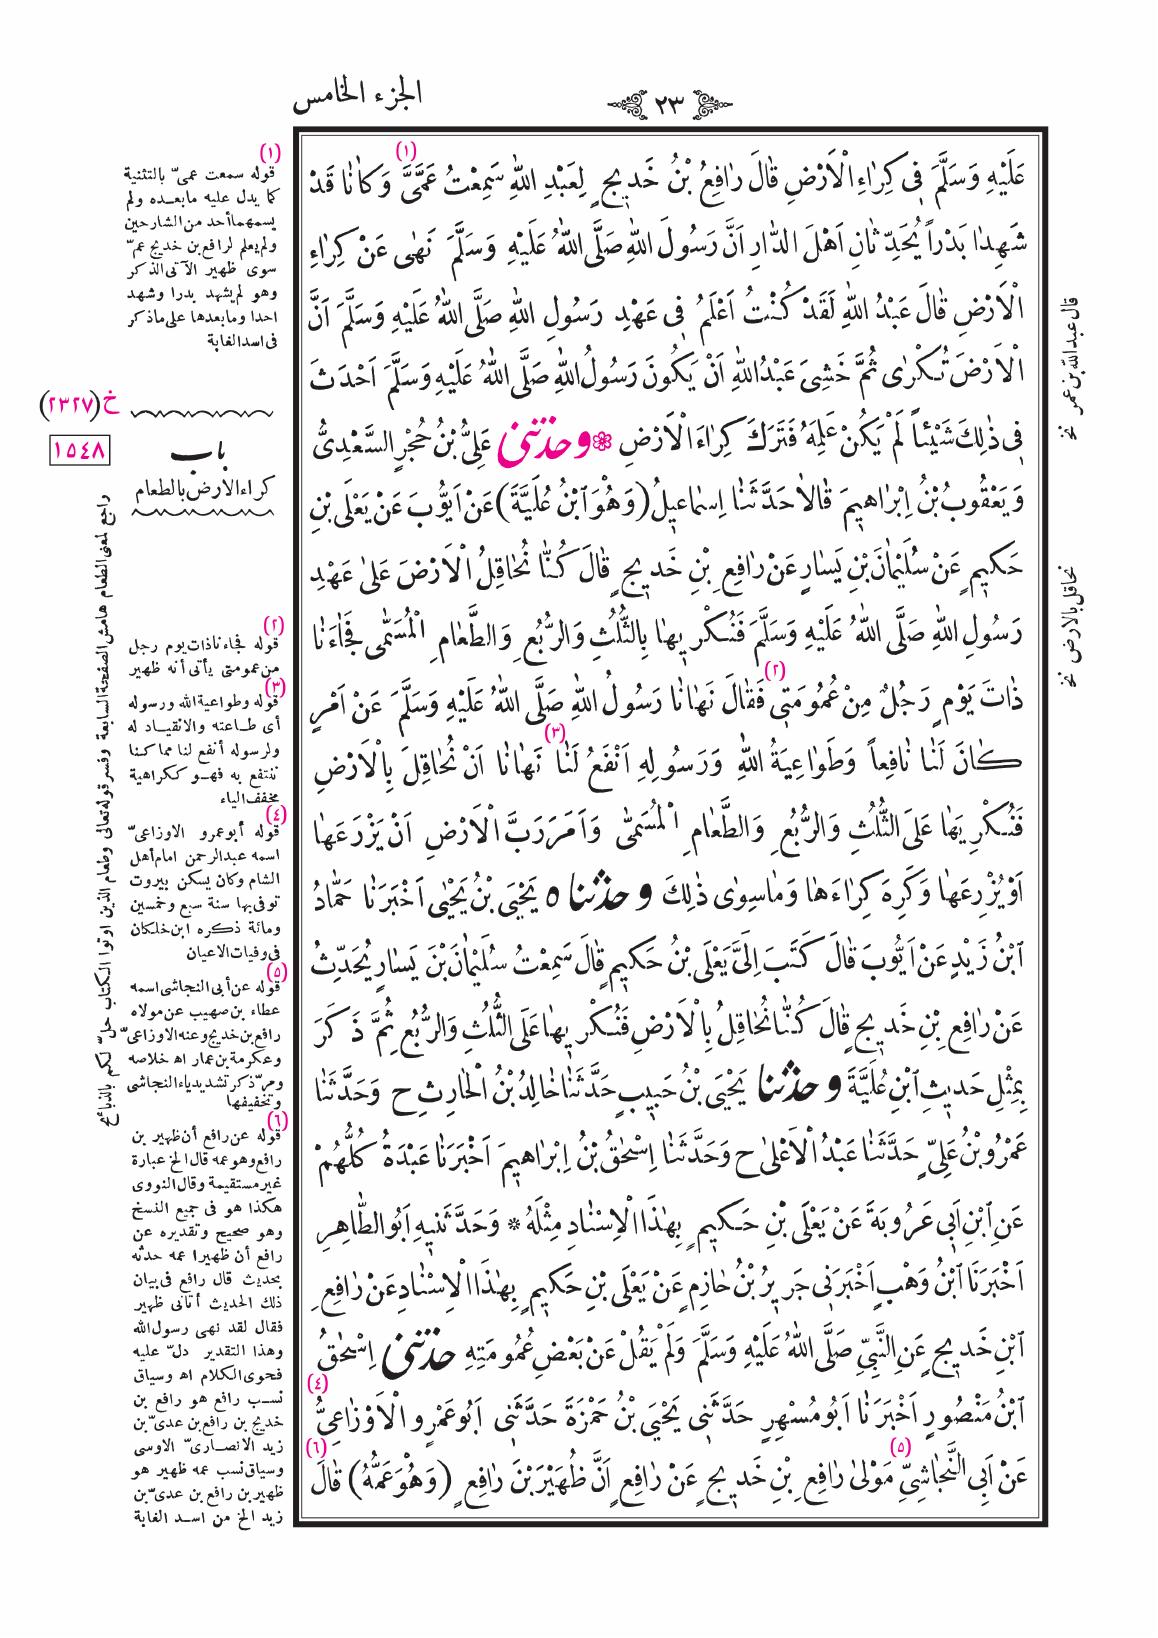 الجزء الخامس
٢٣
عَلَيْهِ وَسَلَّمَ فِى كِرَاءِ الْاَرْضِ قَالَ رَافِعُ بْنُ خَدِيجٍ لِعَبْدِ اللّٰهِ سَمِعْتُ عَمَّىَّ (١) وَكَانَا قَدْ
شَهِدَا بَدْراً يُحَدِّثَانِ اَهْلَ الدَّارِ اَنَّ رَسُولَ اللّٰهِ صَلَّى اللّٰهُ عَلَيْهِ وَسَلَّمَ نَهٰى عَنْ كِرَاءِ
الْاَرْضِ قَالَ عَبْدُ اللّٰهِ لَقَدْ كُنْتُ اَعْلَمُ فِى عَهْدِ رَسُولِ اللّٰهِ صَلَّى اللّٰهُ عَلَيْهِ وَسَلَّمَ اَنَّ
الْاَرْضَ تُكْرٰى ثُمَّ خَشِىَ عَبْدُ اللّٰهِ اَنْ يَكُونَ رَسُولُ اللّٰهِ صَلَّى اللّٰهُ عَلَيْهِ وَسَلَّمَ اَحْدَثَ
فِى ذٰلِكَ شَيْئاً لَمْ يَكُنْ عَلِمَهُ فَتَرَكَ كِرَاءَ الْاَرْضِ ❁ وحدثنى عَلِىُّ بْنُ حُجْرٍ السَّعْدِىُّ
وَيَعْقُوبُ بْنُ اِبْرَاهِيمَ قَالَا حَدَّثَنَا اِسْمَاعِيلُ (وَهُوَ ابْنُ عُلَيَّةَ) عَنْ اَيُّوبَ عَنْ يَعْلَى بْنِ
حَكِيمٍ عَنْ سُلَيْمَانَ بْنِ يَسَارٍ عَنْ رَافِعِ بْنِ خَدِيجٍ قَالَ كُنَّا نُحَاقِلُ الْاَرْضَ عَلىٰ عَهْدِ
رَسُولِ اللّٰهِ صَلَّى اللّٰهُ عَلَيْهِ وَسَلَّمَ فَنُكْرِيهَا بِالثُّلُثِ وَالرُّبُعِ وَالطَّعَامِ الْمُسَمّٰى فَجَاءَنَا
ذَاتَ يَوْمٍ رَجُلٌ مِنْ عُمُومَتِى (٢) فَقَالَ نَهَانَا رَسُولُ اللّٰهِ صَلَّى اللّٰهُ عَلَيْهِ وَسَلَّمَ عَنْ اَمْرٍ
كَانَ لَنَا نَافِعاً وَطَوَاعِيَةُ اللّٰهِ وَرَسُولِهِ اَنْفَعُ لَنَا (٣) نَهَانَا اَنْ نُحَاقِلَ بِالْاَرْضِ
فَنُكْرِيَهَا عَلَى الثُّلُثِ وَالرُّبُعِ وَالطَّعَامِ الْمُسَمّٰى وَاَمَرَ رَبَّ الْاَرْضِ اَنْ يَزْرَعَهَا
اَوْ يُزْرِعَهَا وَكَرِهَ كِرَاءَهَا وَمَا سِوٰى ذٰلِكَ وحدثنا ٥ يَحْيَى بْنُ يَحْيٰى اَخْبَرَنَا حَمَّادُ
ابْنُ زَيْدٍ عَنْ اَيُّوبَ قَالَ كَتَبَ اِلَىَّ يَعْلَى بْنُ حَكِيمٍ قَالَ سَمِعْتُ سُلَيْمَانَ بْنَ يَسَارٍ يُحَدِّثُ
عَنْ رَافِعِ بْنِ خَدِيجٍ قَالَ كُنَّا نُحَاقِلُ بِالْاَرْضِ فَنُكْرِيهَا عَلَى الثُّلُثِ وَالرُّبُعِ ثُمَّ ذَكَرَ
بِمِثْلِ حَدِيثِ ابْنِ عُلَيَّةَ وحدثنا يَحْيَى بْنُ حَبِيبٍ حَدَّثَنَا خَالِدُ بْنُ الْحَارِثِ ح وَحَدَّثَنَا
عَمْرُو بْنُ عَلِىٍّ حَدَّثَنَا عَبْدُ الْاَعْلىٰ ح وَحَدَّثَنَا اِسْحٰقُ بْنُ اِبْرَاهِيمَ اَخْبَرَنَا عَبْدَةُ كُلُّهُمْ
عَنِ ابْنِ اَبِى عَرُوبَةَ عَنْ يَعْلَى بْنِ حَكِيمٍ بِهٰذَا الْاِسْنَادِ مِثْلَهُ * وَحَدَّثَنِيهِ اَبُو الطَّاهِرِ
اَخْبَرَنَا ابْنُ وَهْبٍ اَخْبَرَنِى جَرِيرُ بْنُ حَازِمٍ عَنْ يَعْلَى بْنِ حَكِيمٍ بِهٰذَا الْاِسْنَادِ عَنْ رَافِعِ
ابْنِ خَدِيجٍ عَنِ النَّبِيِّ صَلَّى اللّٰهُ عَلَيْهِ وَسَلَّمَ وَلَمْ يَقُلْ عَنْ بَعْضِ عُمُومَتِهِ حدثنى اِسْحٰقُ
ابْنُ مَنْصُورٍ اَخْبَرَنَا اَبُو مُسْهِرٍ حَدَّثَنِى يَحْيَى بْنُ حَمْزَةَ حَدَّثَنِى اَبُو عَمْرٍو الْاَوْزَاعِىُّ (٤)
عَنْ اَبِى النَّجَاشِىِّ (٥) مَوْلىٰ رَافِعِ بْنِ خَدِيجٍ عَنْ رَافِعٍ اَنَّ ظُهَيْرَ بْنَ رَافِعٍ (وَهُوَ عَمُّهُ) قَالَ (٦)
قال عبد الله بن عمر نخ
نحاقل بالارض نخ
(١)
قوله سمعت عمىّ بالتثنية
كما يدل عليه مابعده ولم
يسمهما أحد من الشارحين
ولم يعلم لرافع بن خديج عمّ
سوى ظهير الآتى الذكر
وهو لم يشهد بدرا وشهد
احدا ومابعدها على ماذكر
فى اسد الغابة
خ (٢٣٢٧)
١٥٤٨
باب
كراء الارض بالطعام
(٢)
قوله فجاءنا ذات يوم رجل
من عمومتى يأتى أنه ظهير
(٣)
قوله وطواعية الله ورسوله
أى طاعته والانقياد له
ولرسوله أنفع لنا مما كنا
ننتفع به فهو ككراهية
مخفف الياء
(٤)
قوله أبو عمرو الاوزاعىّ
اسمه عبدالرحمن امام أهل
الشام وكان يسكن بيروت
توفى بها سنة سبع وخمسين
ومائة ذكره ابن خلكان
فى وفيات الاعيان
(٥)
قوله عن أبى النجاشى اسمه
عطاء بن صهيب عن مولاه
رافع بن خديج وعنه الاوزاعىّ
وعكرمة بن عمار اه خلاصه
ومرّ ذكر تشديد ياء النجاشى
وتخفيفها
(٦)
قوله عن رافع أن ظهير بن
رافع وهو عمه قال الخ عبارة
غير مستقيمة وقال النووى
هكذا هو فى جميع النسخ
وهو صحيح وتقديره عن
رافع أن ظهيرا عمه حدثه
بحديث قال رافع فى بيان
ذلك الحديث أتانى ظهير
فقال لقد نهى رسول الله
وهذا التقدير دلّ عليه
فحوى الكلام اه وسياق
نسب رافع هو رافع بن
خديج بن رافع بن عدىّ بن
زيد الانصارىّ الاوسى
وسياق نسب عمه ظهير هو
ظهير بن رافع بن عدىّ بن
زيد الخ من اسد الغابة
راجع لمعنى الطعام هامش الصفحة السابعة وفسر قوله تعالى وطعام الذين اوتوا الكتاب حلّ لكم بالذبائح